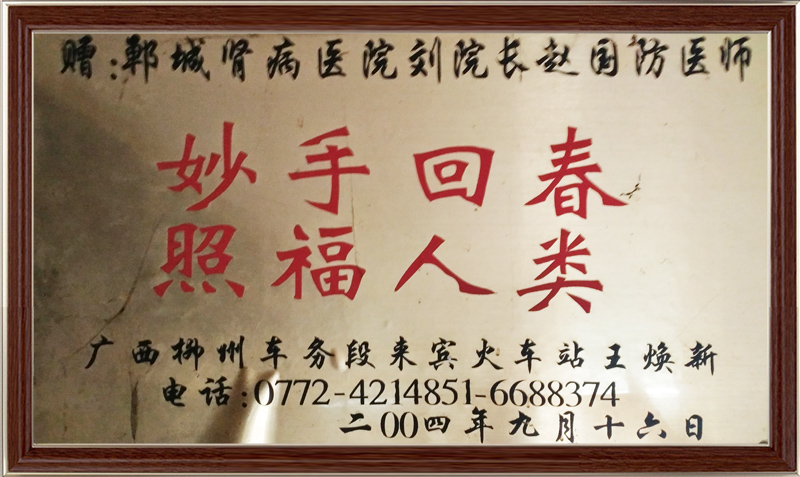 赠:郸城肾病医院刘院长赵国防医师
妙手回春
照福人类
广西柳州车务段来宾火车站王焕新
电话:0772-4214851-6688374
二00四年九月十六日